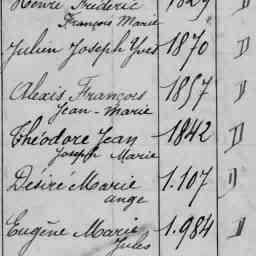 Henri Frédéric 1829 //
François Marie
Julien Joseph Yves 1870 //
Alexis François 1857 //
Jean-Marie
Théodore Jean 1842 //
Joseph Marie
Désiré Marie 1.107 //
ange
Eugène Marie 1.984 //
Jules